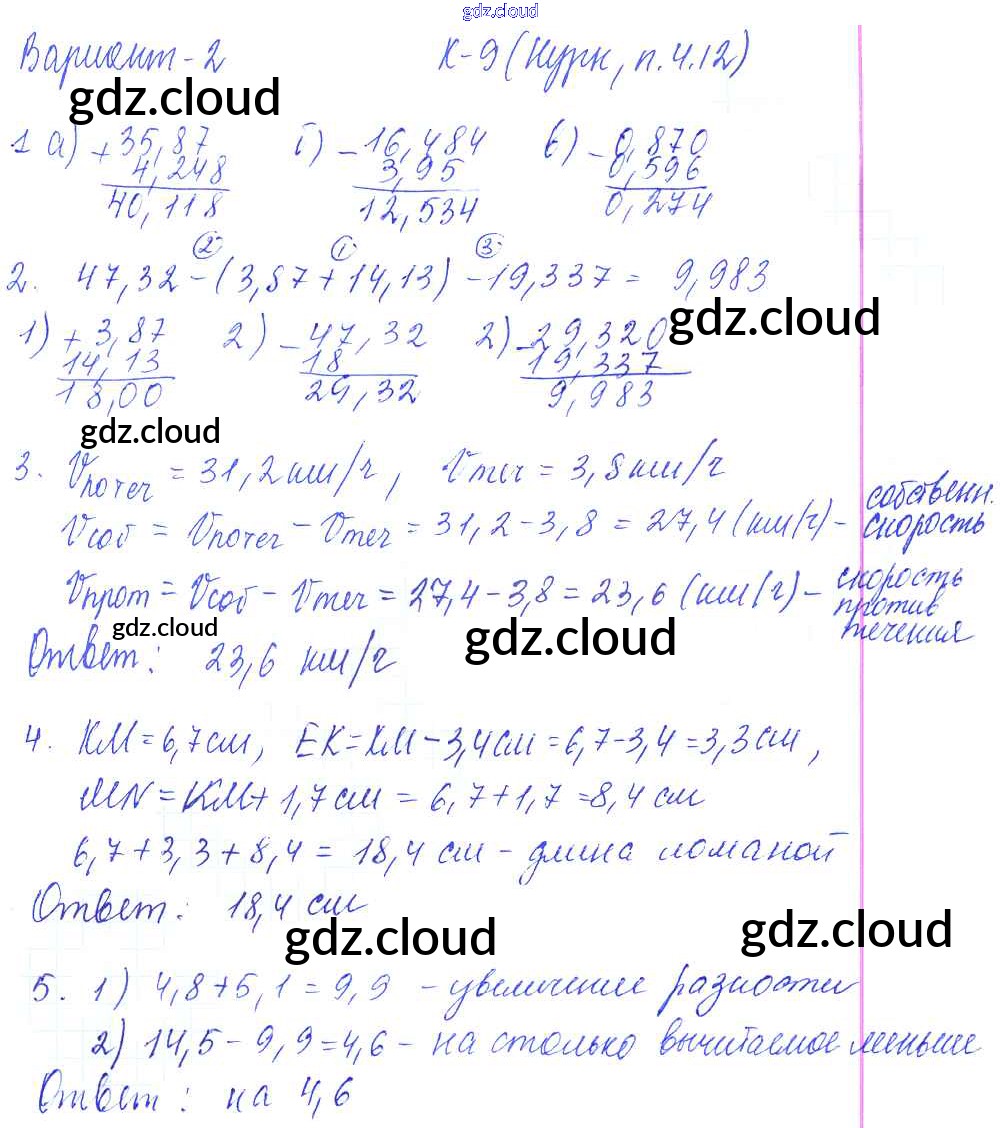 gdz.cloud
Вариант-2 К-9 (Нурк, п.4.12)
gdz.cloud
1 а) +35,87 б) -16,484 в) -0,870
4,248 3,95 0,596
40,118 12,534 0,274
② ① ③
2. 47,32 - (3,87 + 14,13) - 19,337 = 9,983
gdz.cloud
1) + 3,87 2) - 47,32 2) - 29,320
14,13 18 19,337
18,00 29,32 9,983
gdz.cloud
3. Vпотеч = 31,2 км/ч, Vтеч = 3,8 км/ч
Vсоб = Vпотеч - Vтеч = 31,2 - 3,8 = 27,4 (км/ч) - собственн. скорость
Vпрот = Vсоб - Vтеч = 27,4 - 3,8 = 23,6 (км/ч) - скорость против течения
gdz.cloud gdz.cloud
Ответ: 23,6 км/ч
4. КМ = 6,7 см, ЕК = КМ - 3,4 см = 6,7 - 3,4 = 3,3 см,
MN = КМ + 1,7 см = 6,7 + 1,7 = 8,4 см
6,7 + 3,3 + 8,4 = 18,4 см - длина ломаной
Ответ: 18,4 см
gdz.cloud gdz.cloud
5. 1) 4,8 + 5,1 = 9,9 - увеличение разности
2) 14,5 - 9,9 = 4,6 - на столько вычитаемое меньше
Ответ: на 4,6